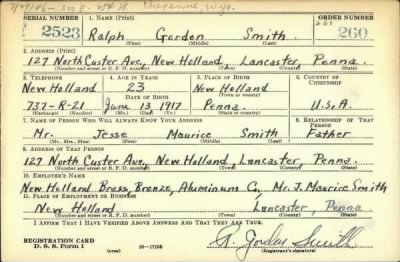 7/29/46 - 300 E. 25th St. Cheyenne, Wyo.
SERIAL NUMBER 1. NAME (Print) ORDER NUMBER
2523 Ralph Gordon Smith 260
(First) (Middle) (Last)
2. ADDRESS (Print)
127 North Custer Ave., New Holland, Lancaster, Penna.
(Number and street or R. F. D. number) (Town) (County) (State)
3. TELEPHONE 4. AGE IN YEARS 5. PLACE OF BIRTH 6. COUNTRY OF CITIZENSHIP
New Holland 23 New Holland
DATE OF BIRTH (Town or county)
737-R-21 June 13 1917 Penna. U.S.A.
(Exchange) (Number) (Mo.) (Day) (Yr.) (State or country)
7. NAME OF PERSON WHO WILL ALWAYS KNOW YOUR ADDRESS 8. RELATIONSHIP OF THAT PERSON
Mr. Jesse Maurice Smith Father
(Mr., Mrs., Miss) (First) (Middle) (Last)
9. ADDRESS OF THAT PERSON
127 North Custer Ave., New Holland, Lancaster, Penna.
(Number and street or R. F. D. number) (Town) (County) (State)
10. EMPLOYER'S NAME
New Holland Brass, Bronze, Aluminum Co., Mr. J. Maurice Smith
11. PLACE OF EMPLOYMENT OR BUSINESS
New Holland Lancaster, Penna
(Number and street or R. F. D. number) (Town) (County) (State)
I AFFIRM THAT I HAVE VERIFIED ABOVE ANSWERS AND THAT THEY ARE TRUE.
REGISTRATION CARD
D. S. S. Form 1 (over) 16-17105
R. Gordon Smith
(Registrant's signature)